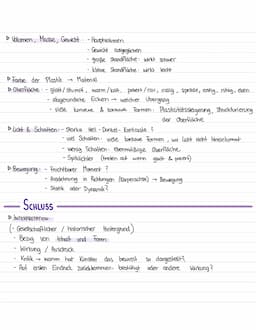 ▷ Volumen, Masse, Gewicht - Proportionen
- Gewicht aufgefangen
- große Standfläche: wirkt schwer
- kleine Standfläche: wirkt leicht
▷ Farbe der Plastik → Material
▷ Oberfläche: - glatt/stumpf, warm/kalt, poliert/roh, rissig, spröde, kantig, ruhig, eben
- abgerundete Ecken → weicher Übergang
- viele konvexe & konkave Formen: Plastizitätssteigerung, Strukturierung
der Oberfläche
▷ Licht & Schatten: - Starker Hell-Dunkel-Kontraste ?
- viel Schatten: viele konkave Formen, wo Licht nicht hineinkommt
- wenig Schatten: ebenmäßige Oberfläche
- Spitzlichter (treten auf wenn glatt & poliert)
▷ Bewegung: - Fruchtbarer Moment ?
- Ausdehnung in Richtungen (Körperachse) → Bewegung
- Statik oder Dynamik?
SCHLUSS
▷ Interpretation
(- Gesellschaftlicher / historischer Hintergrund)
- Bezug von Inhalt und Form
- Wirkung / Ausdruck
- Kritik → warum hat Künstler das bewusst so dargestellt?
- Auf ersten Eindruck zurückkommen: bestätigt oder andere Wirkung?